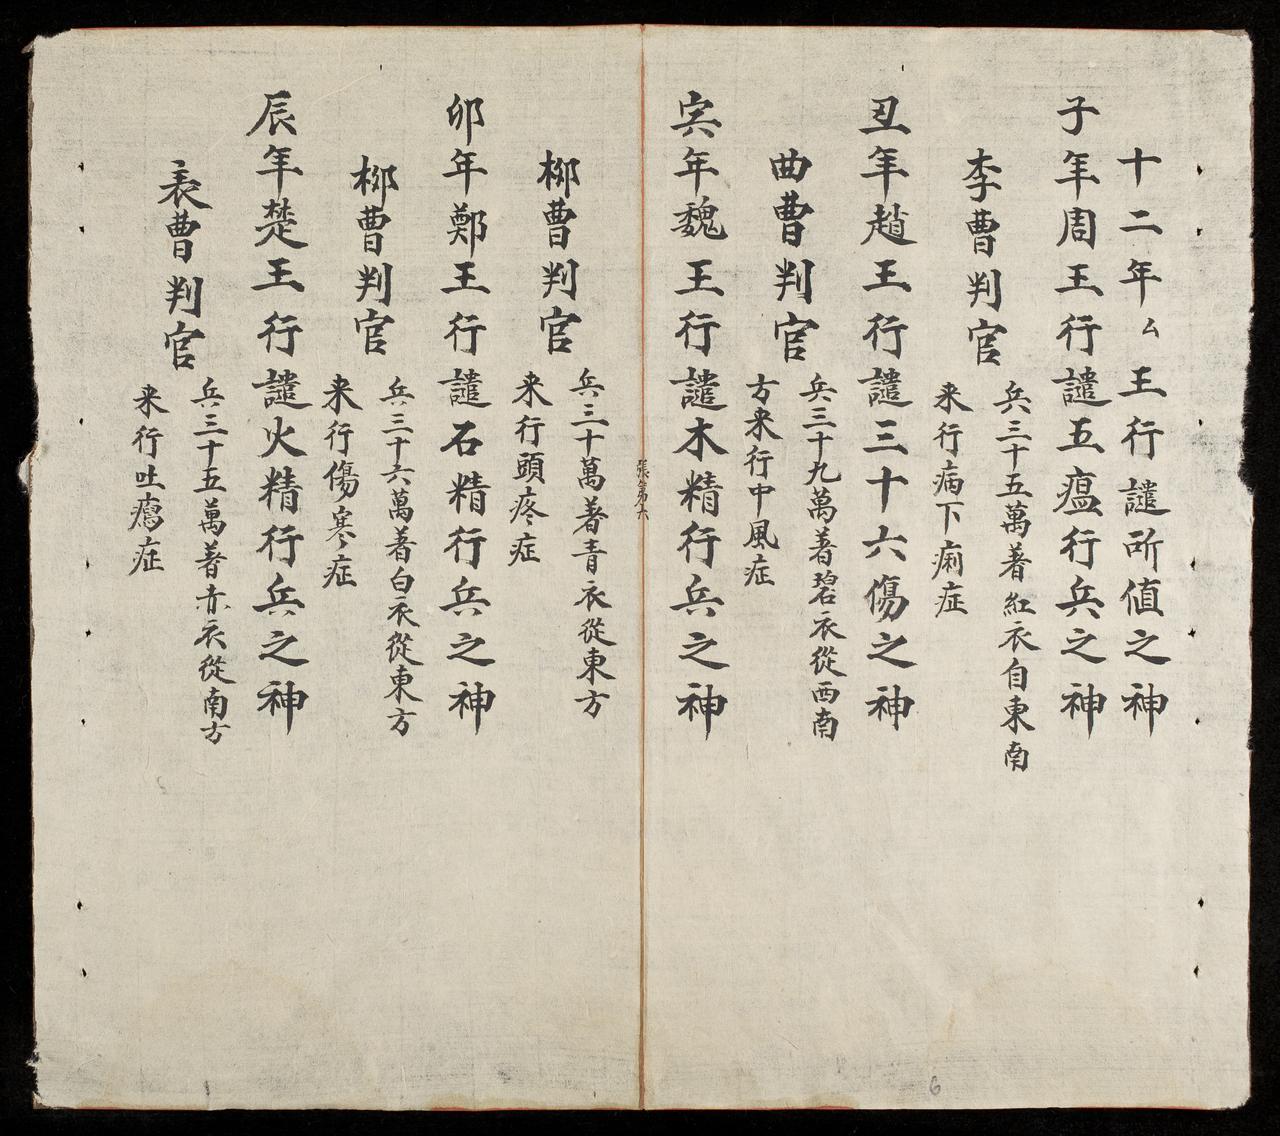 十二年厶王行譴所值之神
子年周王行譴五瘟行兵之神
李曹判官
兵三十五萬着紅衣自東南
来行病下痢症
丑年趙王行譴三十六傷之神
曲曹判官
兵三十九萬着碧衣從西南
方来行中風症
寅年魏王行譴木精行兵之神
張第六
柳曹判官
兵三十萬着青衣從東方
来行頭疼症
卯年鄭王行譴石精行兵之神
柳曹判官
兵三十六萬着白衣從東方
来行傷寒症
辰年楚王行譴火精行兵之神
表曹判官
兵三十五萬着赤衣從南方
来行吐症
6